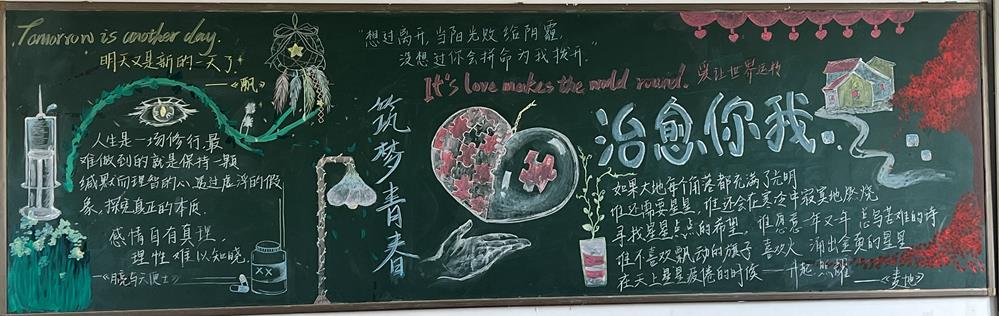 Tomorrow is another day.
明天又是新的一天了
——《飘》
人生是一场修行，最
难做到的就是保持一颗
缄默而理智的心，透过虚浮的假
象，探见真正的本质.
感情自有真理，
理性难以知晓.
——《月亮与六便士》
筑梦青春
"想过离开，当阳光败给阴霾，
没想过你会拼命为我拨开."
It's love makes the world round.
爱让世界运转
治愈你我.
如果大地每个角落都充满了光明
谁还需要星星，谁还会在寒冷中寂寞地燃烧
寻找星星点点的希望， 谁愿意一年又一年 总写苦难的诗
谁不喜欢飘动的旗子 喜欢火 涌出金黄的星星
在天上星星疲倦的时候——升起 照耀
——《麦地》